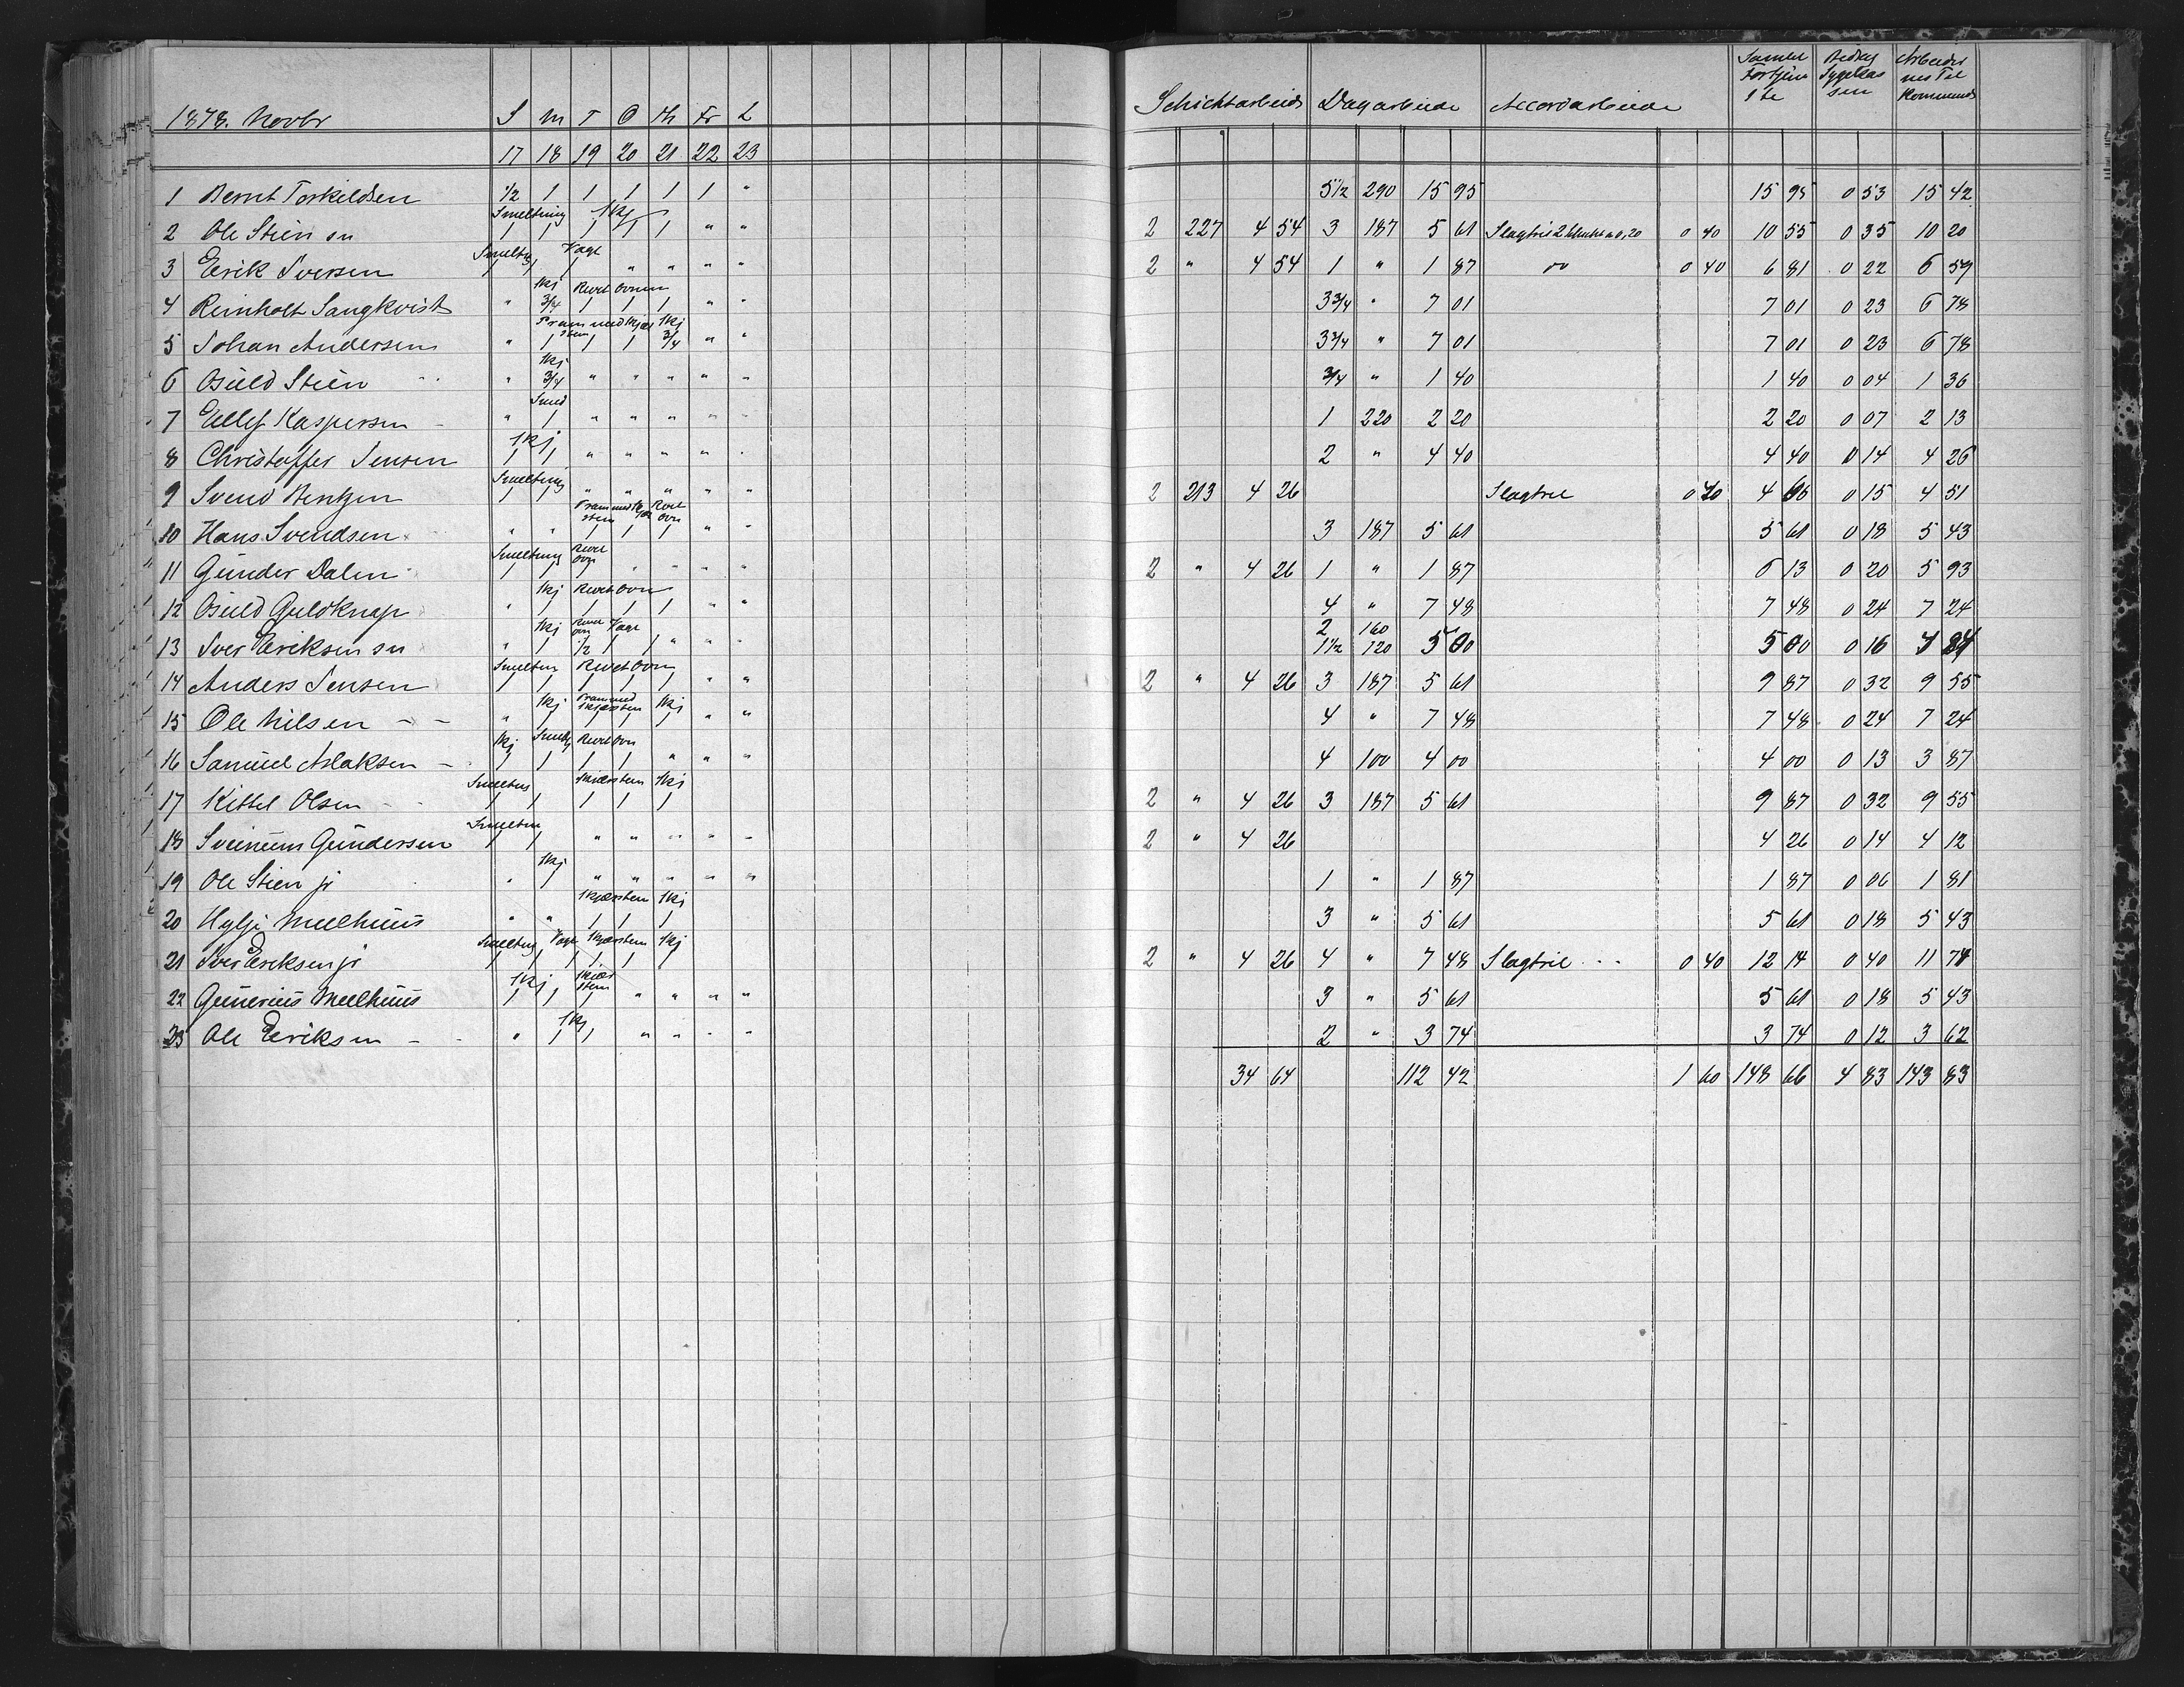 1878. Novbr S M T O Th Fr L Schichtarbeide Dagarbeide Accordarbeide Samlet Fortjeneste Bidrag Sygekassen Arbeidernes Tilkommende
17 18 19 20 21 22 23
1 Bernt Torkildsen 1/2 1 1 1 1 1 " 5 1/2 290 15 95 15 95 0 53 15 42
Smeltning 1kj
2 Ole Stien sn 1 1 1 1 1 " " 2 227 4 54 3 187 5 61 Slagtril 2 a 0,20 0 40 10 55 0 35 10 20
Smeltg Vagt
3 Eerik Iversen 1 1 1 " " " " 2 " 4 54 1 " 1 87 do 0 40 6 81 0 22 6 59
1kj Rivet Ovnen
4 Reinholt Sangkvist " 3/4 1 1 1 " " 3 3/4 " 7 01 7 01 0 23 6 78
Pram med Skjær sten 1kj
5 Johan Andersen " 1 1 1 3/4 " " 3 3/4 " 7 01 7 01 0 23 6 78
1kj
6 Osuld Stien " 3/4 " " " " " 3/4 " 1 40 1 40 0 04 1 36
Smed
7 Ellef Kaspersen " 1 " " " " " 1 220 2 20 2 20 0 07 2 13
1kj
8 Christoffer Jensen 1 1 " " " " " 2 " 4 40 4 40 0 14 4 26
Smeltning
9 Svend Bentzen 1 1 " " " " " 2 213 4 26 Slagtril 0 40 4 66 0 15 4 51
Pram med Skjær sten Rivet Ovn
10 Hans Svendsen " " 1 1 1 " " 3 187 5 61 5 61 0 18 5 43
Smeltning Rivet Ovn
11 Gunder Dalen 1 1 1 " " " " 2 " 4 26 1 " 1 87 6 13 0 20 5 93
1kj Rivet Ovn
12 Osuld Guldknap " 1 1 1 1 " " 4 " 7 48 7 48 0 24 7 24
1kj Rivet Ovn Vagt 2 160
13 Iver Eeriksen sn " 1 1/2 1 1 " " " 1 1/2 120 5 00 5 00 0 16 4 84
Smeltnin Rivet Ovn
14 Anders Jensen 1 1 1 1 1 " " 2 " 4 26 3 187 5 61 9 87 0 32 9 55
1kj Pram med Skjærsten 1kj
15 Ole Nilsen " 1 1 1 1 " " 4 " 7 48 7 48 0 24 7 24
1kj Smeltg Rivet Ovn
16 Samuel Aslaksen 1 1 1 1 " " " 4 100 4 00 4 00 0 13 3 87
Smeltng Skjærsten 1kj
17 Kittel Olsen 1 1 1 1 1 2 " 4 26 3 187 5 61 9 87 0 32 9 55
Smeltnin
18 Sveinum Gundersen 1 1 " " " " " 2 " 4 26 4 26 0 14 4 12
1kj
19 Ole Stien jr " 1 " " " " " 1 " 1 87 1 87 0 06 1 81
Skjærsten 1kj
20 Hylje Meelhuus " " 1 1 1 3 " 5 61 5 61 0 18 5 43
Smeltng Vagt Skjærsten 1kj
21 Iver Eeriksen jr 1 1 1 1 1 1 2 " 4 26 4 " 7 48 Slagtril 0 40 12 14 0 40 11 74
1kj Skjær sten
22 Gunerius Meelhuus 1 1 1 " " " " 3 " 5 61 5 61 0 18 5 43
1kj
23 Ole Eeriksen " 1 1 " " " " 2 " 3 74 3 74 0 12 3 62
34 64 112 42 1 60 148 66 4 83 143 83